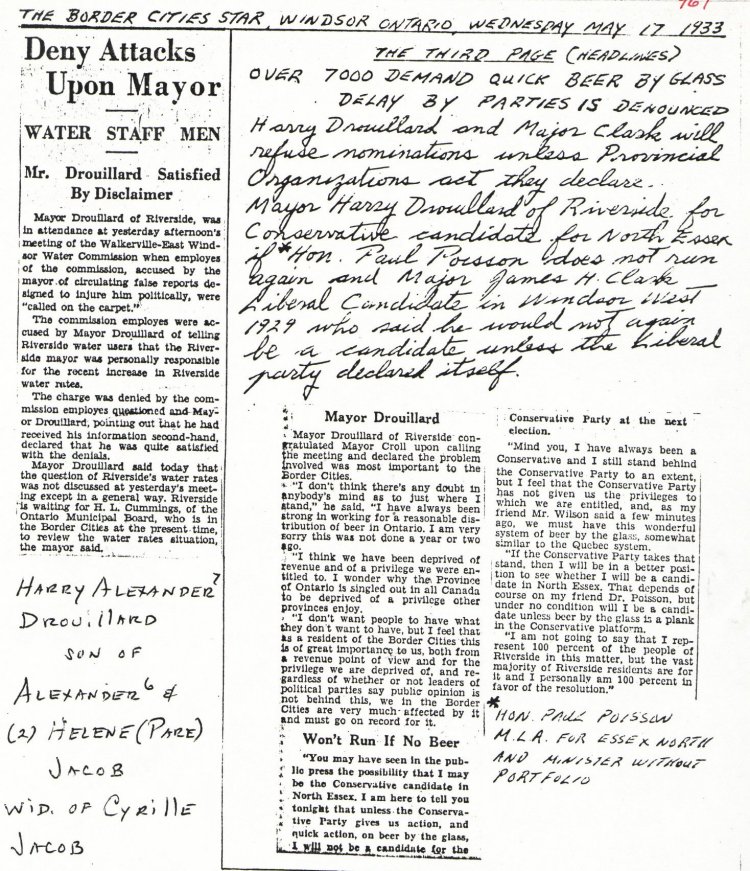 761
THE BORDER CITIES STAR, WINDSOR ONTARIO, WEDNESDAY MAY 17 1933
Deny Attacks
Upon Mayor
WATER STAFF MEN
Mr. Drouillard Satisfied
By Disclaimer
Mayor Drouillard of Riverside, was
in attendance at yesterday afternoon's
meeting of the Walkerville-East Wind-
sor Water Commission when employes
of the commission, accused by the
mayor of circulating false reports de-
signed to injure him politically, were
"called on the carpet."
The commission employes were ac-
cused by Mayor Drouillard of telling
Riverside water users that the River-
side mayor was personally responsible
for the recent increase in Riverside
water rates.
The charge was denied by the com-
mission employes questioned and May-
or Drouillard, pointing out that he had
received his information second-hand,
declared that he was quite satisfied
with the denials.
Mayor Drouillard said today that
the question of Riverside's water rates
was not discussed at yesterday's meet-
ing except in a general way. Riverside
is waiting for H. L. Cummings, of the
Ontario Municipal Board, who is in
the Border Cities at the present time,
to review the water rates situation,
the mayor said.
HARRY ALEXANDER 7
DROUILLARD
SON OF
ALEXANDER 6 &
(2) HELENE (PARE)
JACOB
WID. OF CYRILLE
JACOB
THE THIRD PAGE (HEADLINES)
OVER 7000 DEMAND QUICK BEER BY GLASS
DELAY BY PARTIES IS DENOUNCED
Harry Drouillard and Major Clark will
refuse nominations unless Provincial
Organizations act they declare.
Mayor Harry Drouillard of Riverside for
Conservative candidate for North Essex
if *Hon. Paul Poisson does not run
again and Major James H. Clark
Liberal Candidate in Windsor West
1929 who said he would not again
be a candidate unless the Liberal
party declared itself.
Mayor Drouillard
Mayor Drouillard of Riverside con-
gratulated Mayor Croll upon calling
the meeting and declared the problem
involved was most important to the
Border Cities.
"I don't think there's any doubt in
anybody's mind as to just where I
stand," he said. "I have always been
strong in working for a reasonable dis-
tribution of beer in Ontario. I am very
sorry this was not done a year or two
ago.
"I think we have been deprived of
revenue and of a privilege we were en-
titled to. I wonder why the Province
of Ontario is singled out in all Canada
to be deprived of a privilege other
provinces enjoy.
"I don't want people to have what
they don't want to have, but I feel that
as a resident of the Border Cities this
is of great importance to us, both from
a revenue point of view and for the
privilege we are deprived of, and re-
gardless of whether or not leaders of
political parties say public opinion is
not behind this, we in the Border
Cities are very much affected by it
and must go on record for it.
Won't Run If No Beer
"You may have seen in the pub-
lic press the possibility that I may
be the Conservative candidate in
North Essex. I am here to tell you
tonight that unless the Conserva-
tive Party gives us action, and
quick action, on beer by the glass,
I will not be a candidate for the
Conservative Party at the next
election.
"Mind you, I have always been a
Conservative and I still stand behind
the Conservative Party to an extent,
but I feel that the Conservative Party
has not given us the privileges to
which we are entitled, and, as my
friend Mr. Wilson said a few minutes
ago, we must have this wonderful
system of beer by the glass, somewhat
similar to the Quebec system.
"If the Conservative Party takes that
stand, then I will be in a better posi-
tion to see whether I will be a candi-
date in North Essex. That depends of
course on my friend Dr. Poisson, but
under no condition will I be a candi-
date unless beer by the glass is a plank
in the Conservative platform.
"I am not going to say that I rep-
resent 100 percent of the people of
Riverside in this matter, but the vast
majority of Riverside residents are for
it and I personally am 100 percent in
favor of the resolution."
*
HON. PAUL POISSON
M.L.A. FOR ESSEX NORTH
AND MINISTER WITHOUT
PORTFOLIO